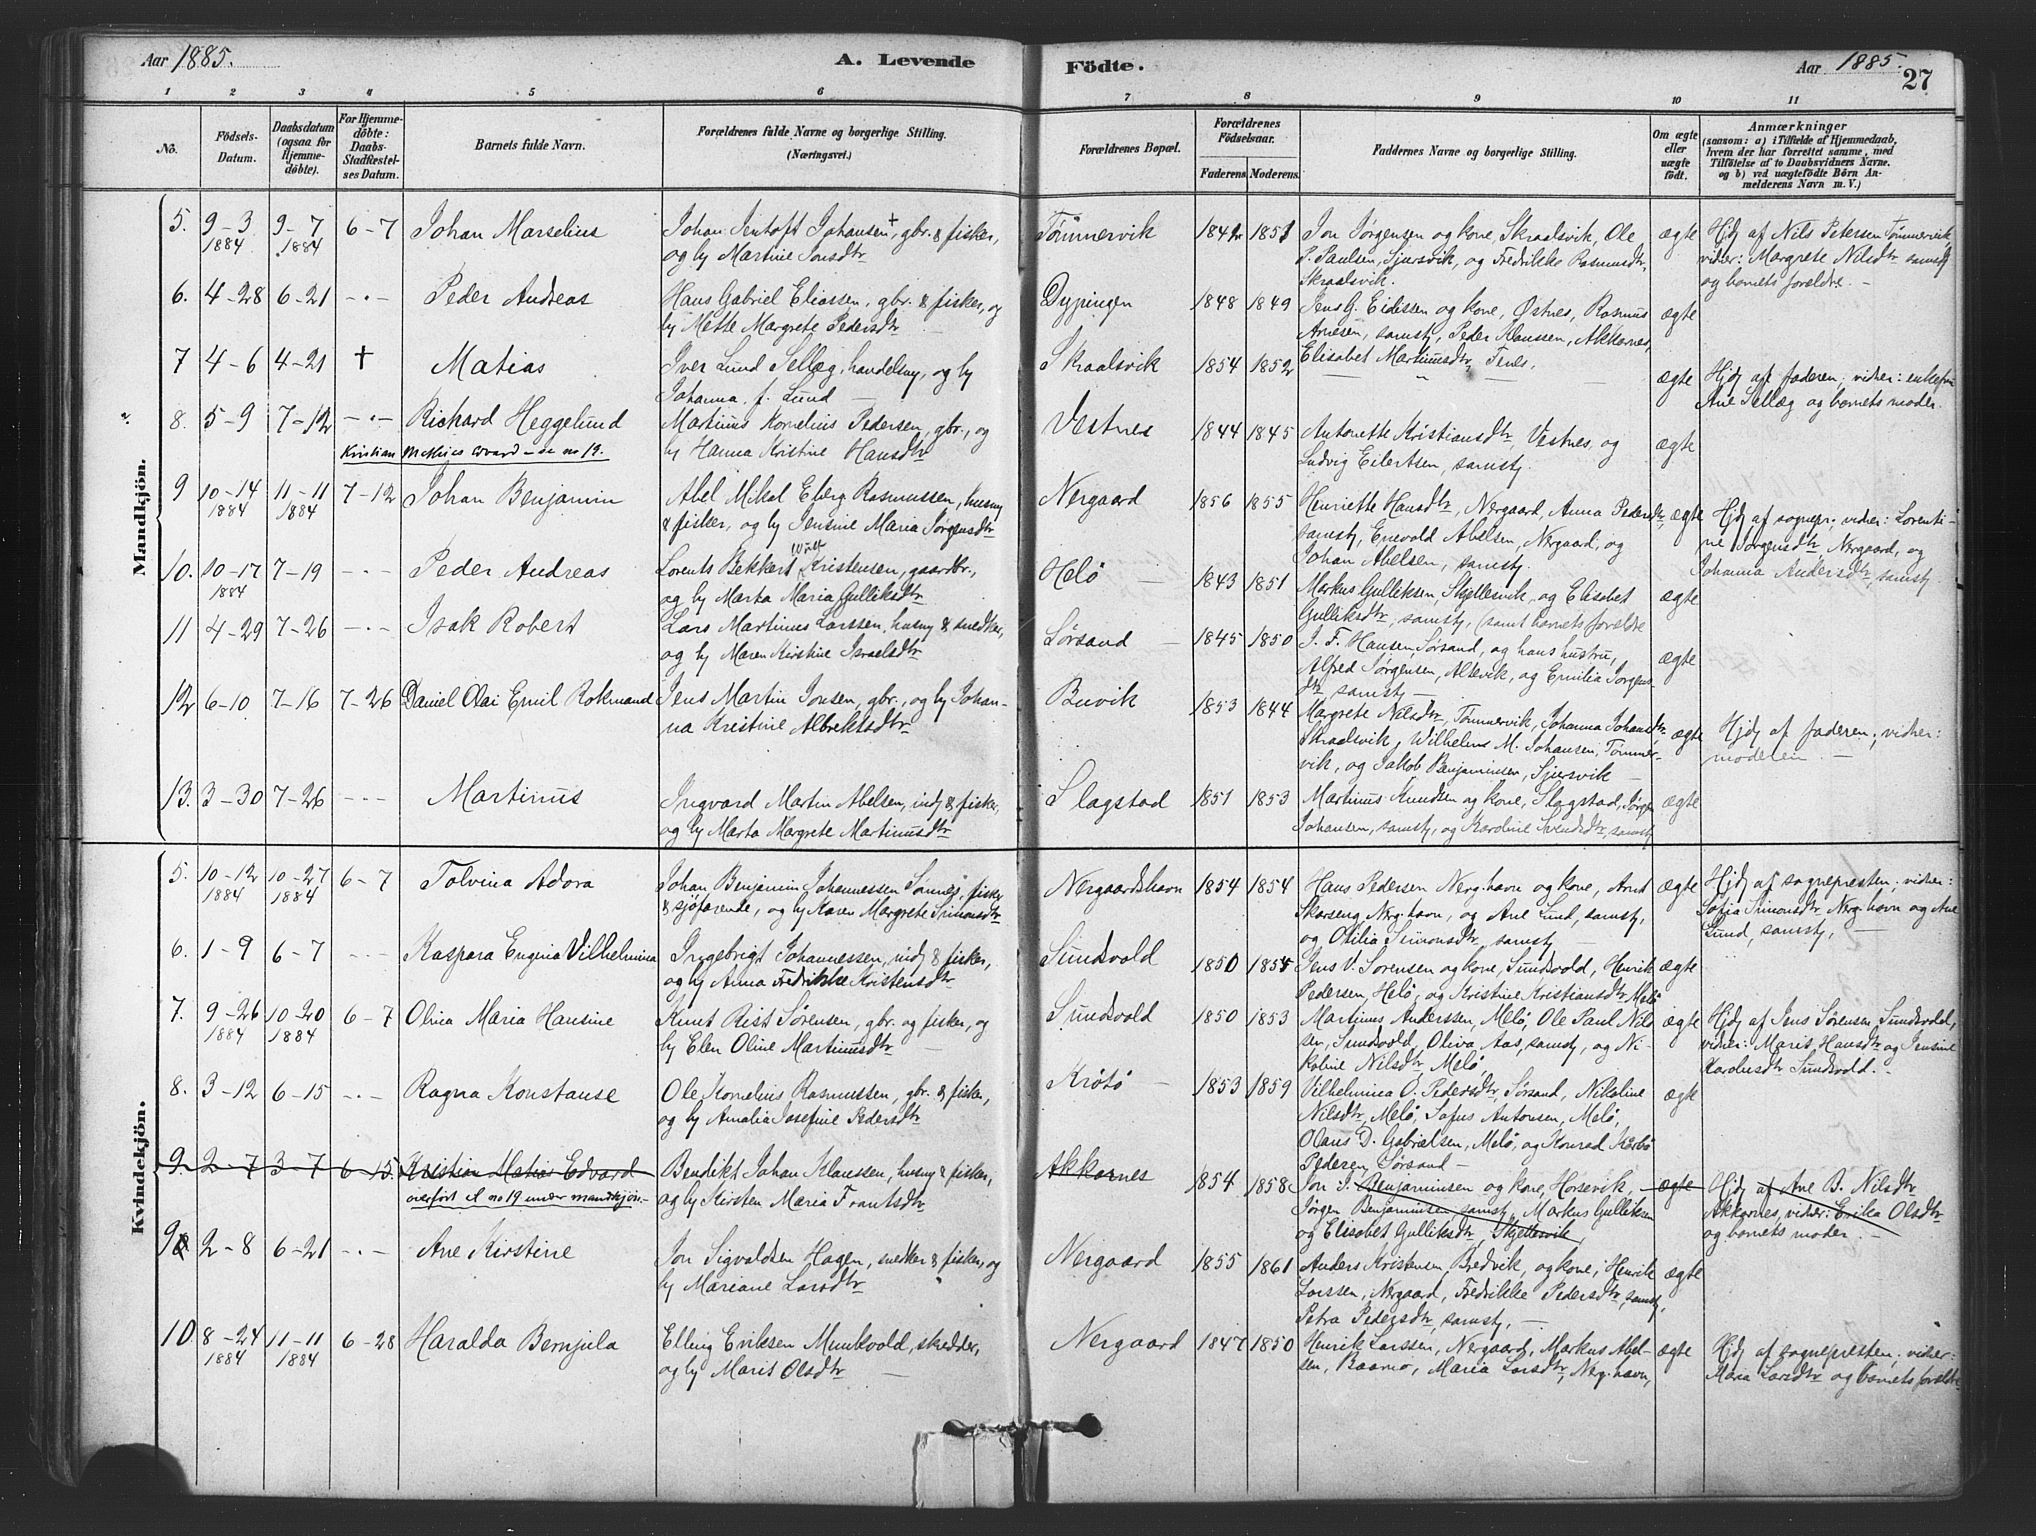 Aar 1885.
A. Levende
Födte.
Aar 1885.
27
1 2 3 4 5 6 7 8 9 10 11
No.
Födsels-
Datum.
Daabsdatum
(ogsaa for
Hjemme-
döbte).
For Hjemme-
döbte:
Daabs-
Stadfæstel-
ses Datum.
Barnets fulde Navn.
Forældrenes fulde Navne og borgerlige Stilling.
(Næringsvei.)
Forældrenes Bopæl.
Forældrenes
Födselsaar.
Faderens Moderens
Faddernes Navne og borgerlige Stilling.
Om ægte
eller
uægte
födt.
Anmærkninger
(saasom: a) i Tilfælde af Hjemmedaab,
hvem der har forrettet samme, med
Tilföielse af to Daabsvidners Navne.
og b) ved uægtefödte Börn An-
melderens Navn m. V.)
Mandkjön.
5. 9-3 9-7 6-7 Johan Marselius
1884 1884
Johan Jentoft Johansen +, gbr. & fisker,
og hy Martine Jonsdtr
Tömmervik
1851
Jon Jørgensen og kone, Skraalsvik, Ole
P. Paulsen, Sjursvik, og Fredrikke Rasmusdtr,
Skraalsvik.
ægte
Hjdj af Nils Petersen Tömmervik,
vidner: Margrete Nilsdtr samstj
og barnets forældre. -
6. 4-28 6-21 -.- Peder Andreas
Hans Gabriel Eliassen, gbr. & fisker, og
hy Mette Margrete Pedersdtr
Dypingen
1848 1849
Jens G. Eidissen og kone, Østnes, Rasmus
Arnesen, samstj, Peder Hanssen, Akkarnes,
Elisabet Martinusdtr, Tenes.
ægte
7 4-6 4-21 + Matias
Iver Lund Sellæg, handelsmy, og hy
Johanna, f. Lund
Skraalsvik
1854 1852
ægte
Hjdj af faderen; vidner: enkefru
Ane Sellæg og barnets moder.
8. 5-9 7-12 -.- Richard Heggelund
Kristian Mathias Edvard - se no 19.
Martinus Kornelius Pedersen, gbr., og
hy Hanna Kristine Hansdtr
Vestnes
1844 1845
Antonette Kristiansdtr, Vestnes, og
Ludvig Eilertsen, samstj.
ægte
9 10-14 11-11 7-12 Johan Benjamin
1884 1884
Abel Mikal Eberg Rasmussen, husmy
& fisker, og hy Jensine Maria Jørgensdtr
Nergaard
1856 1855
Henriette Hansdtr, Nergaard, Anna Pedersdtr,
samstj, Enevold Abelsen, Nergaard, og
Johan Abelsen, samstj.
ægte
Hjdj af sognepr.; vidner: Lorenti-
ne Jørgensdtr, Nergaard, og
Johanna Andersdtr, samstj
10. 10-17 7-19 -.- Peder Andreas
1884
Lorents Bekkert Wulf Kristensen, gaardbr.,
og hy Marta Maria Gulliksdtr
Helö
1843 1851
Markus Gulliksen, Skjellesvik, og Elisabet
Gulliksdtr, samstj, (samt barnets forældre
ægte
11 4-29 7-26 -.- Isak Robert
Lars Martinus Larssen, husmy & snedker,
og hy Maren Kirstine Israelsdtr
Sørsand
1845 1850
J. F. Hansen Sørsand, og hans hustru,
Alfred Jørgensen, Altevik, og Emilia Jørgens-
dtr, samstj
ægte
12 6-10 7-16 7-26 Daniel Olai Emil Rokmand
Jens Martin Jonsen, gbr., og hy Johan-
na Kristine Albrektsdtr
Buvik
1853 1844
Margrete Nilsdtr, Tömmervik, Johanna Johansdtr,
Skraalsvik, Wilhelm M. Johansen, Tömmer-
vik, og Jakob Benjaminsen, Sjursvik
ægte
Hjdj af faderen; vidner:
moderen -
13. 3-30 7-26 -.- Martinus
Ingvard Martin Abelsen, indj & fisker,
og hy Marta Margrete Martinusdtr
Slagstad
1851 1853
Martinus Knudsen og kone, Slagstad, Jørgen
Johansen, samstj, og Karoline Svendsdtr, samstj
ægte
Kvindekjön.
5. 10-12 10-27 6-7 Tolvina Adora
1884 1884
Johan Benjamin Johannessen Sannes, fisker
& sjöfarende, og hy Karen Margrete Simonsdtr
Nergaardshavn
1854 1854
Hans Pedersen Nerg.havn og kone, Arnt
Skarseng Nerg.havn, og Ane Lund, samstj,
og Otilia Simonsdtr, samstj
ægte
Hjdj af sognepresten; vidner:
Sofia Simonsdtr, Nerg.havn og Ane
Lund, samstj, -
6. 1-9 6-7 -.- Kaspara Eugina Vilhelmina
Ingebrigt Johannessen, indj & fisker,
og hy Anna Fredrikke Kristensdtr
Sundsvold
1850 1855
Jens V. Sørensen og kone, Sundsvold, Henrik
Pedersen, Helö, og Kristine Kristiansdtr, Melö
ægte
7. 9-26 10-20 6-7 Olina Maria Hansine
1884 1884
Knut Rist Sørensen, gbr. og fisker, og
hy Elen Oline Martinusdtr
Sundsvold
1850 1853
Martinus Anderssen, Melö, Ole Paul Nils
sen, Sundsvold, Oliva Aas, samstj, og Ni-
koline Nilsdtr, Melö,
ægte
Hjdj af Jens Sørensen, Sundsvold,
vidner: Marit Hansdtr og Jensine
Kardusdtr Sundsvold. -
8. 3-12 6-15 -.- Ragna Konstanse
Ole Kornelius Rasmussen, gbr. & fisker,
og hy Amalia Josefine Pedersdtr
Krötö
1853 1859
Vilhelmina O. Pedersdtr, Sørsand, Nikoline
Nilsdtr, Melö, Sofus Antonsen, Melö,
Olaus D. Gabrielsen, Melö, og Konrad Karbö
Pedersen, Sørsand -
ægte
9. 2-7 3-7 6-15. Kristian Matias Edvard
overført til no 19 under mandkjön.
Bendikt Johan Klaussen, husmy & fisker,
og hy Kirsten Maria Frantsdtr
Akkarnes
1854 1858
Jon J. Benjaminsen og kone, Horsevik,
Jørgen Benjaminsen samstj, Markus Gulliksen
og Elisabet Gulliksdtr, Skjellesvik,
ægte
Hjdj af Ane B. Nilsdtr
Akkarnes, vidner: Erika Olsdtr
og barnets moder. -
9 2-8 6-21 -.- Ane Kirstine
Jon Sigvaldsen Hagen, snedker & fisker, og
hy Mariane Larsdtr
Nergaard
1855 1861
Anders Kristensen, Bredvik, og kone, Henrik
Larssen, Nergaard, Fredrikke Pedersdtr, samstj,
Petra Pedersdtr, samstj, -
ægte
10. 8-24 11-11 6-28 Haralda Bernjula
1884 1884
Elling Eriksen Munkvold, skredder,
og hy Marit Olsdtr
Nergaard
1847 1850
Henrik Larssen, Nergaard, Markus Abel-
sen, Maria Larsdtr, Nerg.havn,
ægte
Hjdj af sognepresten; vidner:
Maria Larsdtr og barnets forældre